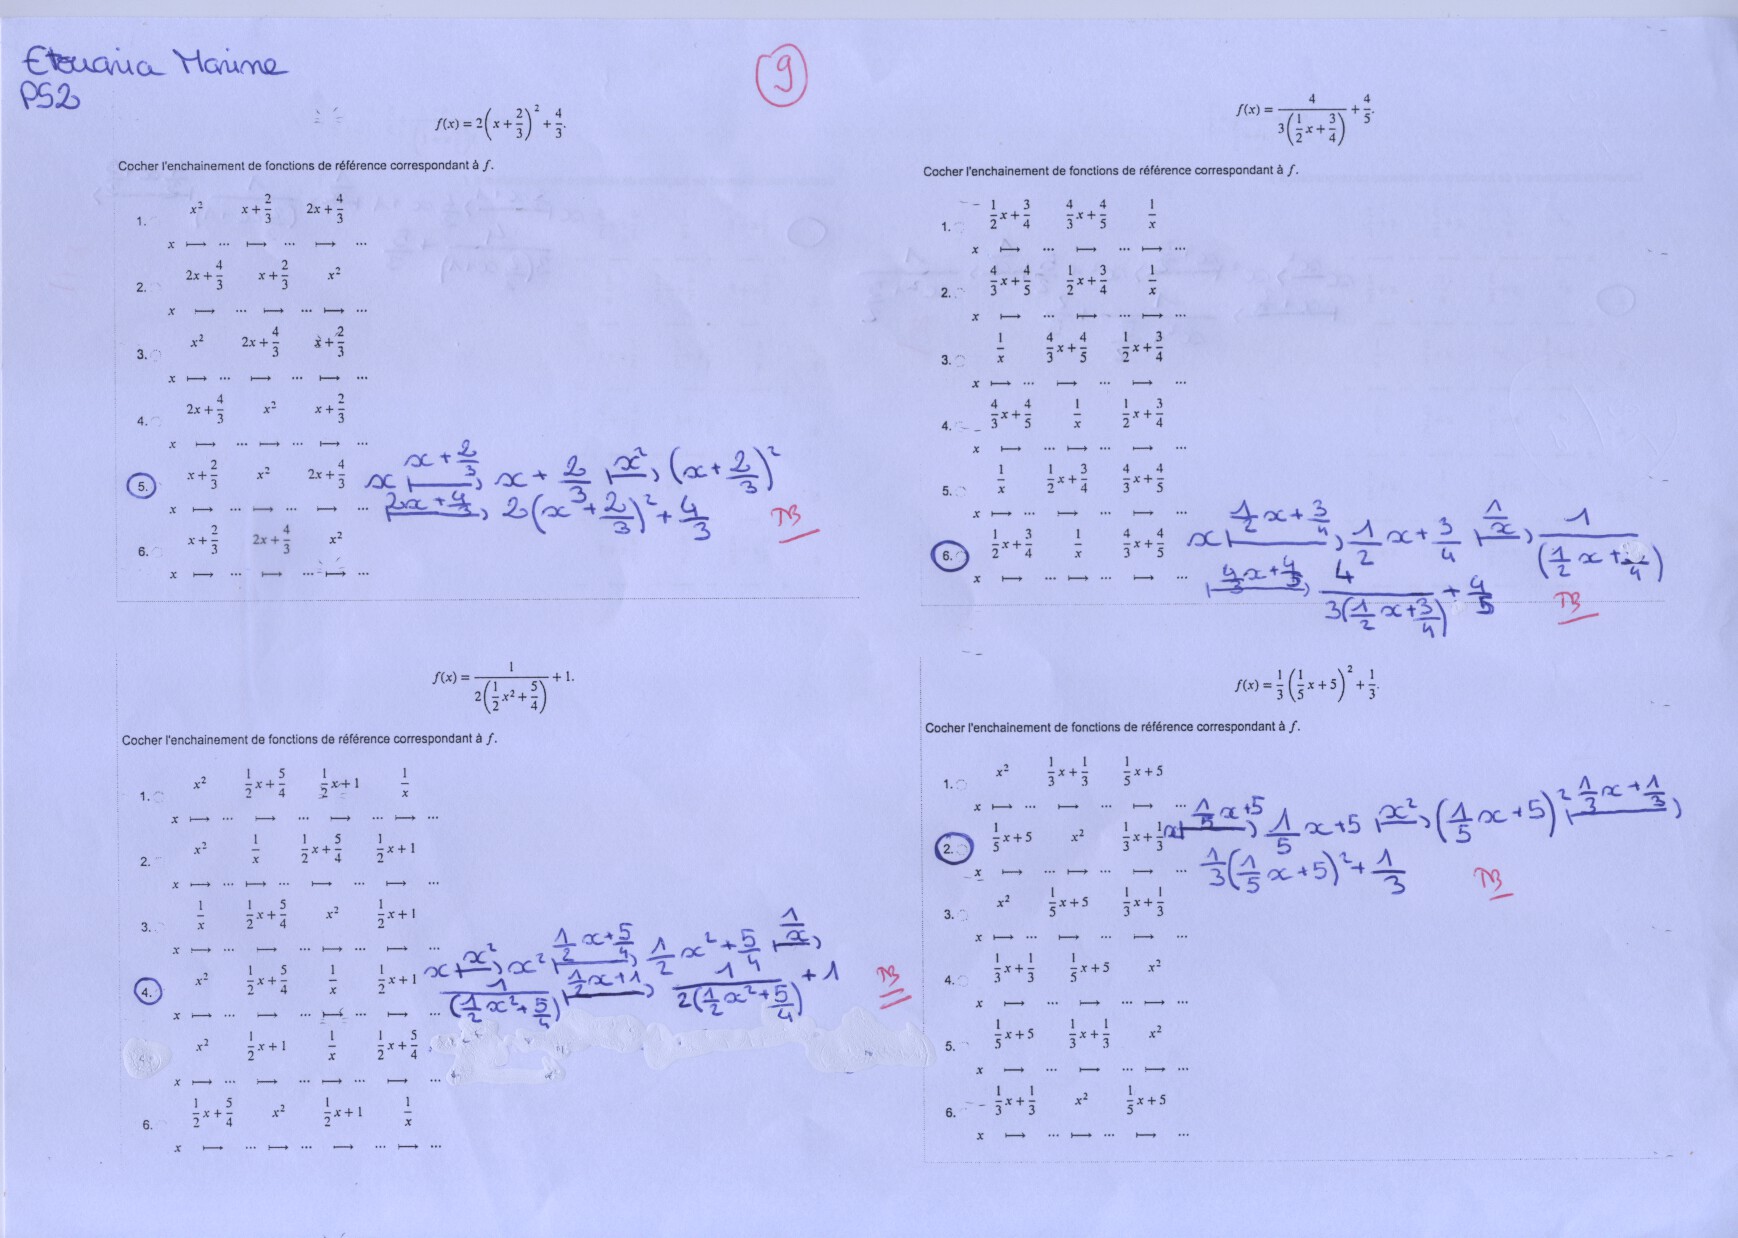 Marine
PS2
9
f(x) = 2(x + 2/3)² + 4/3.
Cocher l'enchainement de fonctions de référence correspondant à f.
1. x² x + 2/3 2x + 4/3
x ⟼ ... ⟼ ... ⟼ ...
2. 2x + 4/3 x + 2/3 x²
x ⟼ ... ⟼ ... ⟼ ...
3. x² 2x + 4/3 x + 2/3
x ⟼ ... ⟼ ... ⟼ ...
4. 2x + 4/3 x² x + 2/3
x ⟼ ... ⟼ ... ⟼ ...
5. x + 2/3 x² 2x + 4/3
x ⟼ ... ⟼ ... ⟼ ...
x ⟼ (x + 2/3) x + 2/3 ⟼ (x²) (x + 2/3)²
⟼ (2x + 4/3) 2(x + 2/3)² + 4/3 TB
6. x + 2/3 2x + 4/3 x²
x ⟼ ... ⟼ ... ⟼ ...
f(x) = 4/(3(1/2 x + 3/4)) + 4/5.
Cocher l'enchainement de fonctions de référence correspondant à f.
1. 1/2 x + 3/4 4/3 x + 4/5 1/x
x ⟼ ... ⟼ ... ⟼ ...
2. 4/3 x + 4/5 1/2 x + 3/4 1/x
x ⟼ ... ⟼ ... ⟼ ...
3. 1/x 4/3 x + 4/5 1/2 x + 3/4
x ⟼ ... ⟼ ... ⟼ ...
4. 4/3 x + 4/5 1/x 1/2 x + 3/4
x ⟼ ... ⟼ ... ⟼ ...
5. 1/x 1/2 x + 3/4 4/3 x + 4/5
x ⟼ ... ⟼ ... ⟼ ...
6. 1/2 x + 3/4 1/x 4/3 x + 4/5
x ⟼ ... ⟼ ... ⟼ ...
x ⟼ (1/2 x + 3/4) 1/2 x + 3/4 ⟼ (1/x) 1/(1/2 x + /4)
⟼ (4/3 x + 4/5) 4/(3(1/2 x + 3/4)) + 4/5 TB
f(x) = 1/(2(1/2 x² + 5/4)) + 1.
Cocher l'enchainement de fonctions de référence correspondant à f.
1. x² 1/2 x + 5/4 1/2 x + 1 1/x
x ⟼ ... ⟼ ... ⟼ ... ⟼ ...
2. x² 1/x 1/2 x + 5/4 1/2 x + 1
x ⟼ ... ⟼ ... ⟼ ... ⟼ ...
3. 1/x 1/2 x + 5/4 x² 1/2 x + 1
x ⟼ ... ⟼ ... ⟼ ... ⟼ ...
4. x² 1/2 x + 5/4 1/x 1/2 x + 1
x ⟼ ... ⟼ ... ⟼ ... ⟼ ...
x ⟼ (x²) x² ⟼ (1/2 x + 5/4) 1/2 x² + 5/4 ⟼ (1/x)
1/(1/2 x² + 5/4) ⟼ (1/2 x + 1) 1/(2(1/2 x² + 5/4)) + 1 TB
x² 1/2 x + 1 1/x 1/2 x + 5/4
x ⟼ ... ⟼ ... ⟼ ... ⟼ ...
6. 1/2 x + 5/4 x² 1/2 x + 1 1/x
x ⟼ ... ⟼ ... ⟼ ... ⟼ ...
f(x) = 1/3 (1/5 x + 5)² + 1/3.
Cocher l'enchainement de fonctions de référence correspondant à f.
1. x² 1/3 x + 1/3 1/5 x + 5
x ⟼ ... ⟼ ... ⟼ ...
2. 1/5 x + 5 x² 1/3 x + 1/3
x ⟼ ... ⟼ ... ⟼ ...
x ⟼ (1/5 x + 5) 1/5 x + 5 ⟼ (x²) (1/5 x + 5)² ⟼ (1/3 x + 1/3)
1/3 (1/5 x + 5)² + 1/3 TB
3. x² 1/5 x + 5 1/3 x + 1/3
x ⟼ ... ⟼ ... ⟼ ...
4. 1/3 x + 1/3 1/5 x + 5 x²
x ⟼ ... ⟼ ... ⟼ ...
5. 1/5 x + 5 1/3 x + 1/3 x²
x ⟼ ... ⟼ ... ⟼ ...
6. 1/3 x + 1/3 x² 1/5 x + 5
x ⟼ ... ⟼ ... ⟼ ...